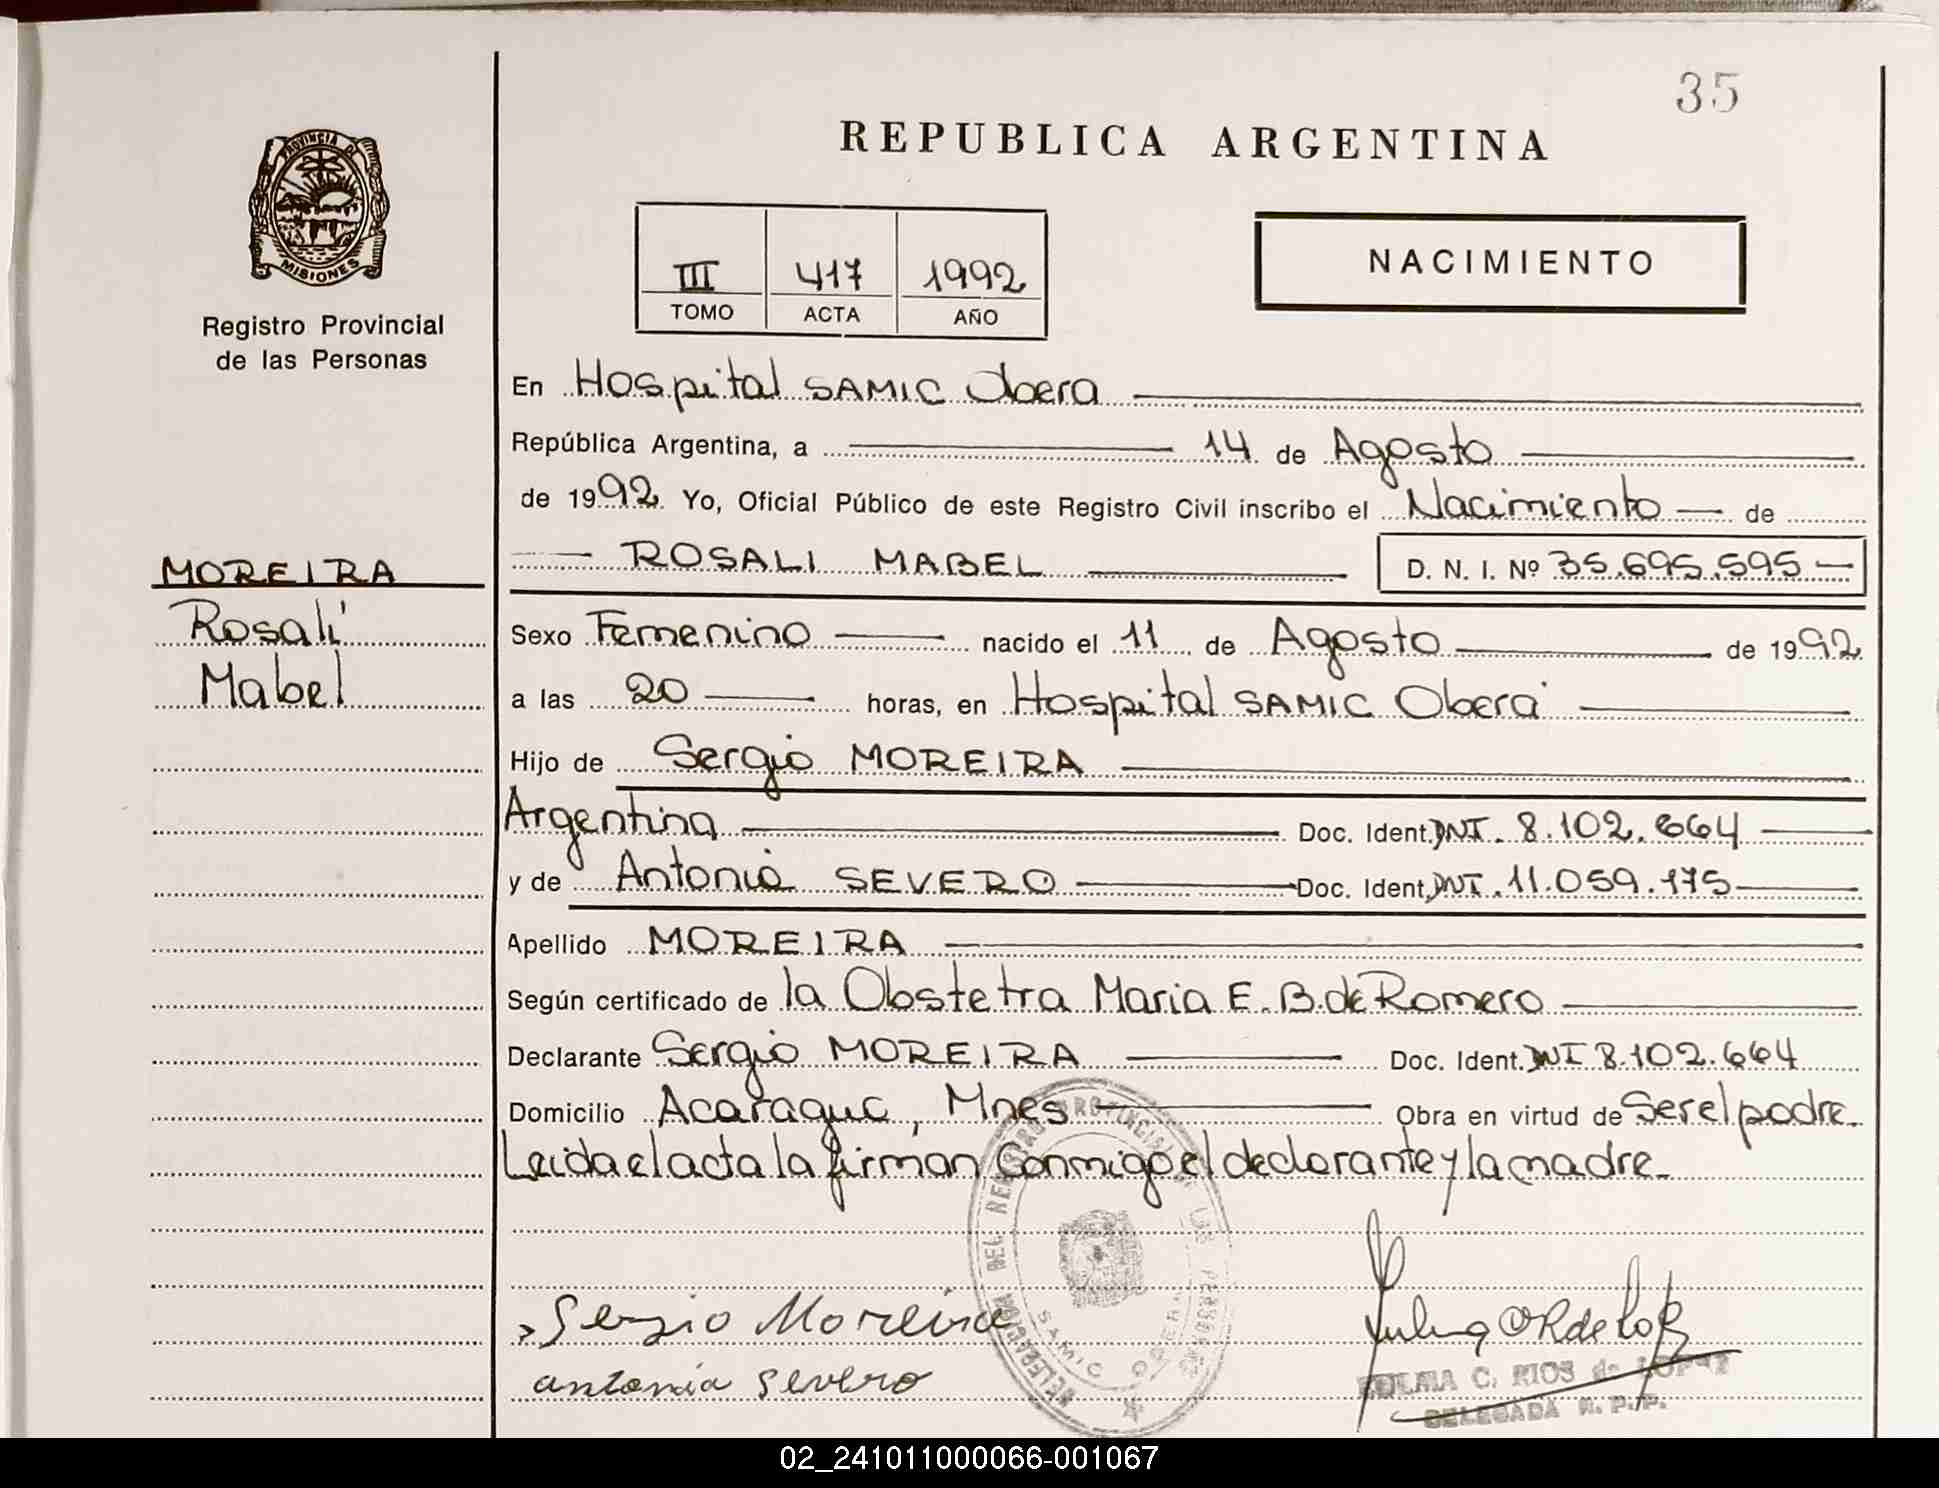 35
REPUBLICA ARGENTINA
PROVINCIA DE
MISIONES
Registro Provincial
de las Personas
III 417 1992
TOMO ACTA AÑO
NACIMIENTO
En Hospital SAMIC Obera
República Argentina, a 14 de Agosto
de 1992 Yo, Oficial Público de este Registro Civil inscribo el Nacimiento de
ROSALI MABEL D. N. I. Nº 35.695.595
MOREIRA
Rosalí
Mabel
Sexo Femenino nacido el 11 de Agosto de 1992
a las 20 horas, en Hospital SAMIC Oberá
Hijo de Sergio MOREIRA
Argentina Doc. Ident. DNI. 8.102.664
y de Antonia SEVERO Doc. Ident. DNI. 11.059.175
Apellido MOREIRA
Según certificado de la Obstetra Maria E. B. de Romero
Declarante Sergio MOREIRA Doc. Ident. DNI 8.102.664
Domicilio Acaragua, Mnes Obra en virtud de Ser el padre.
Leida el acta la firman Conmigo el declarante y la madre.
DELEGACION DEL REGISTRO PROVINCIAL DE LAS PERSONAS
SAMIC OBERA
Sergio Moreira
antonia severo
ZULMA C. RIOS de LOPEZ
DELEGADA R. P. P.
02_241011000066-001067